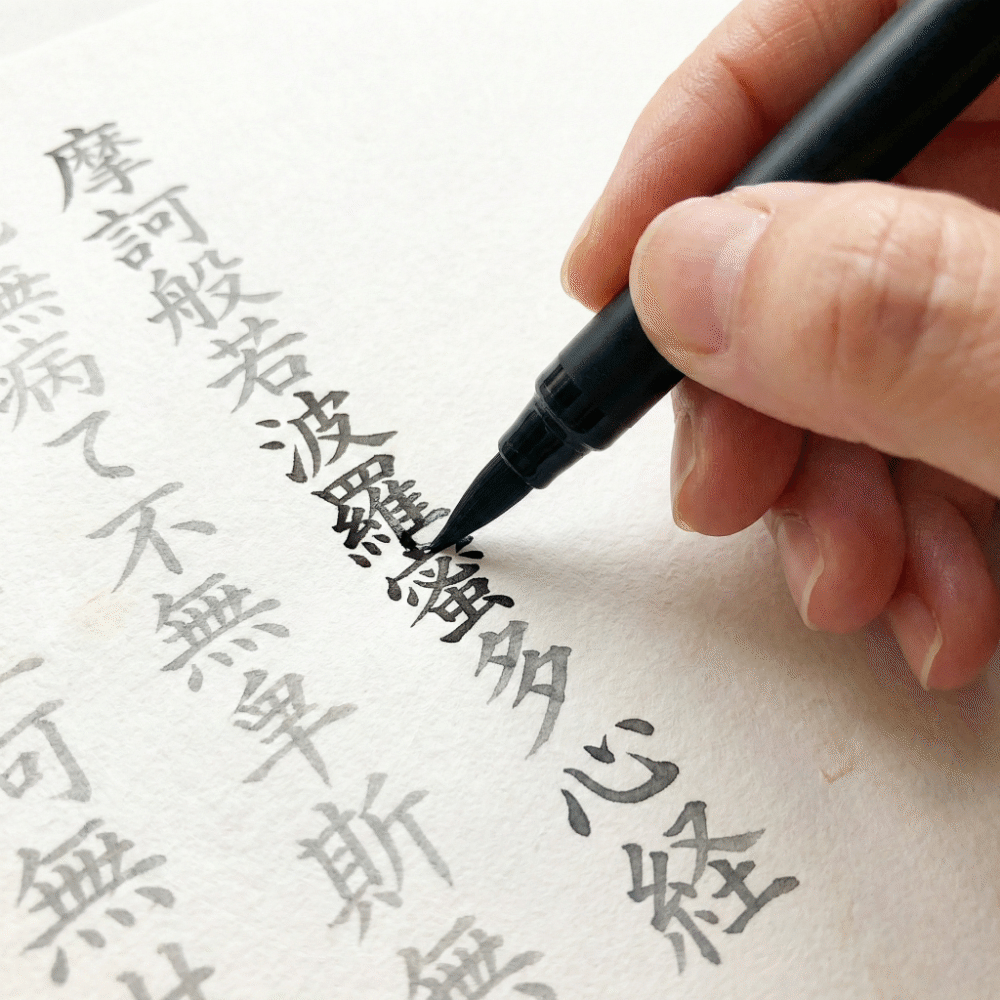 摩訶般若波羅蜜多心経
無病て不無卑斯無
可無